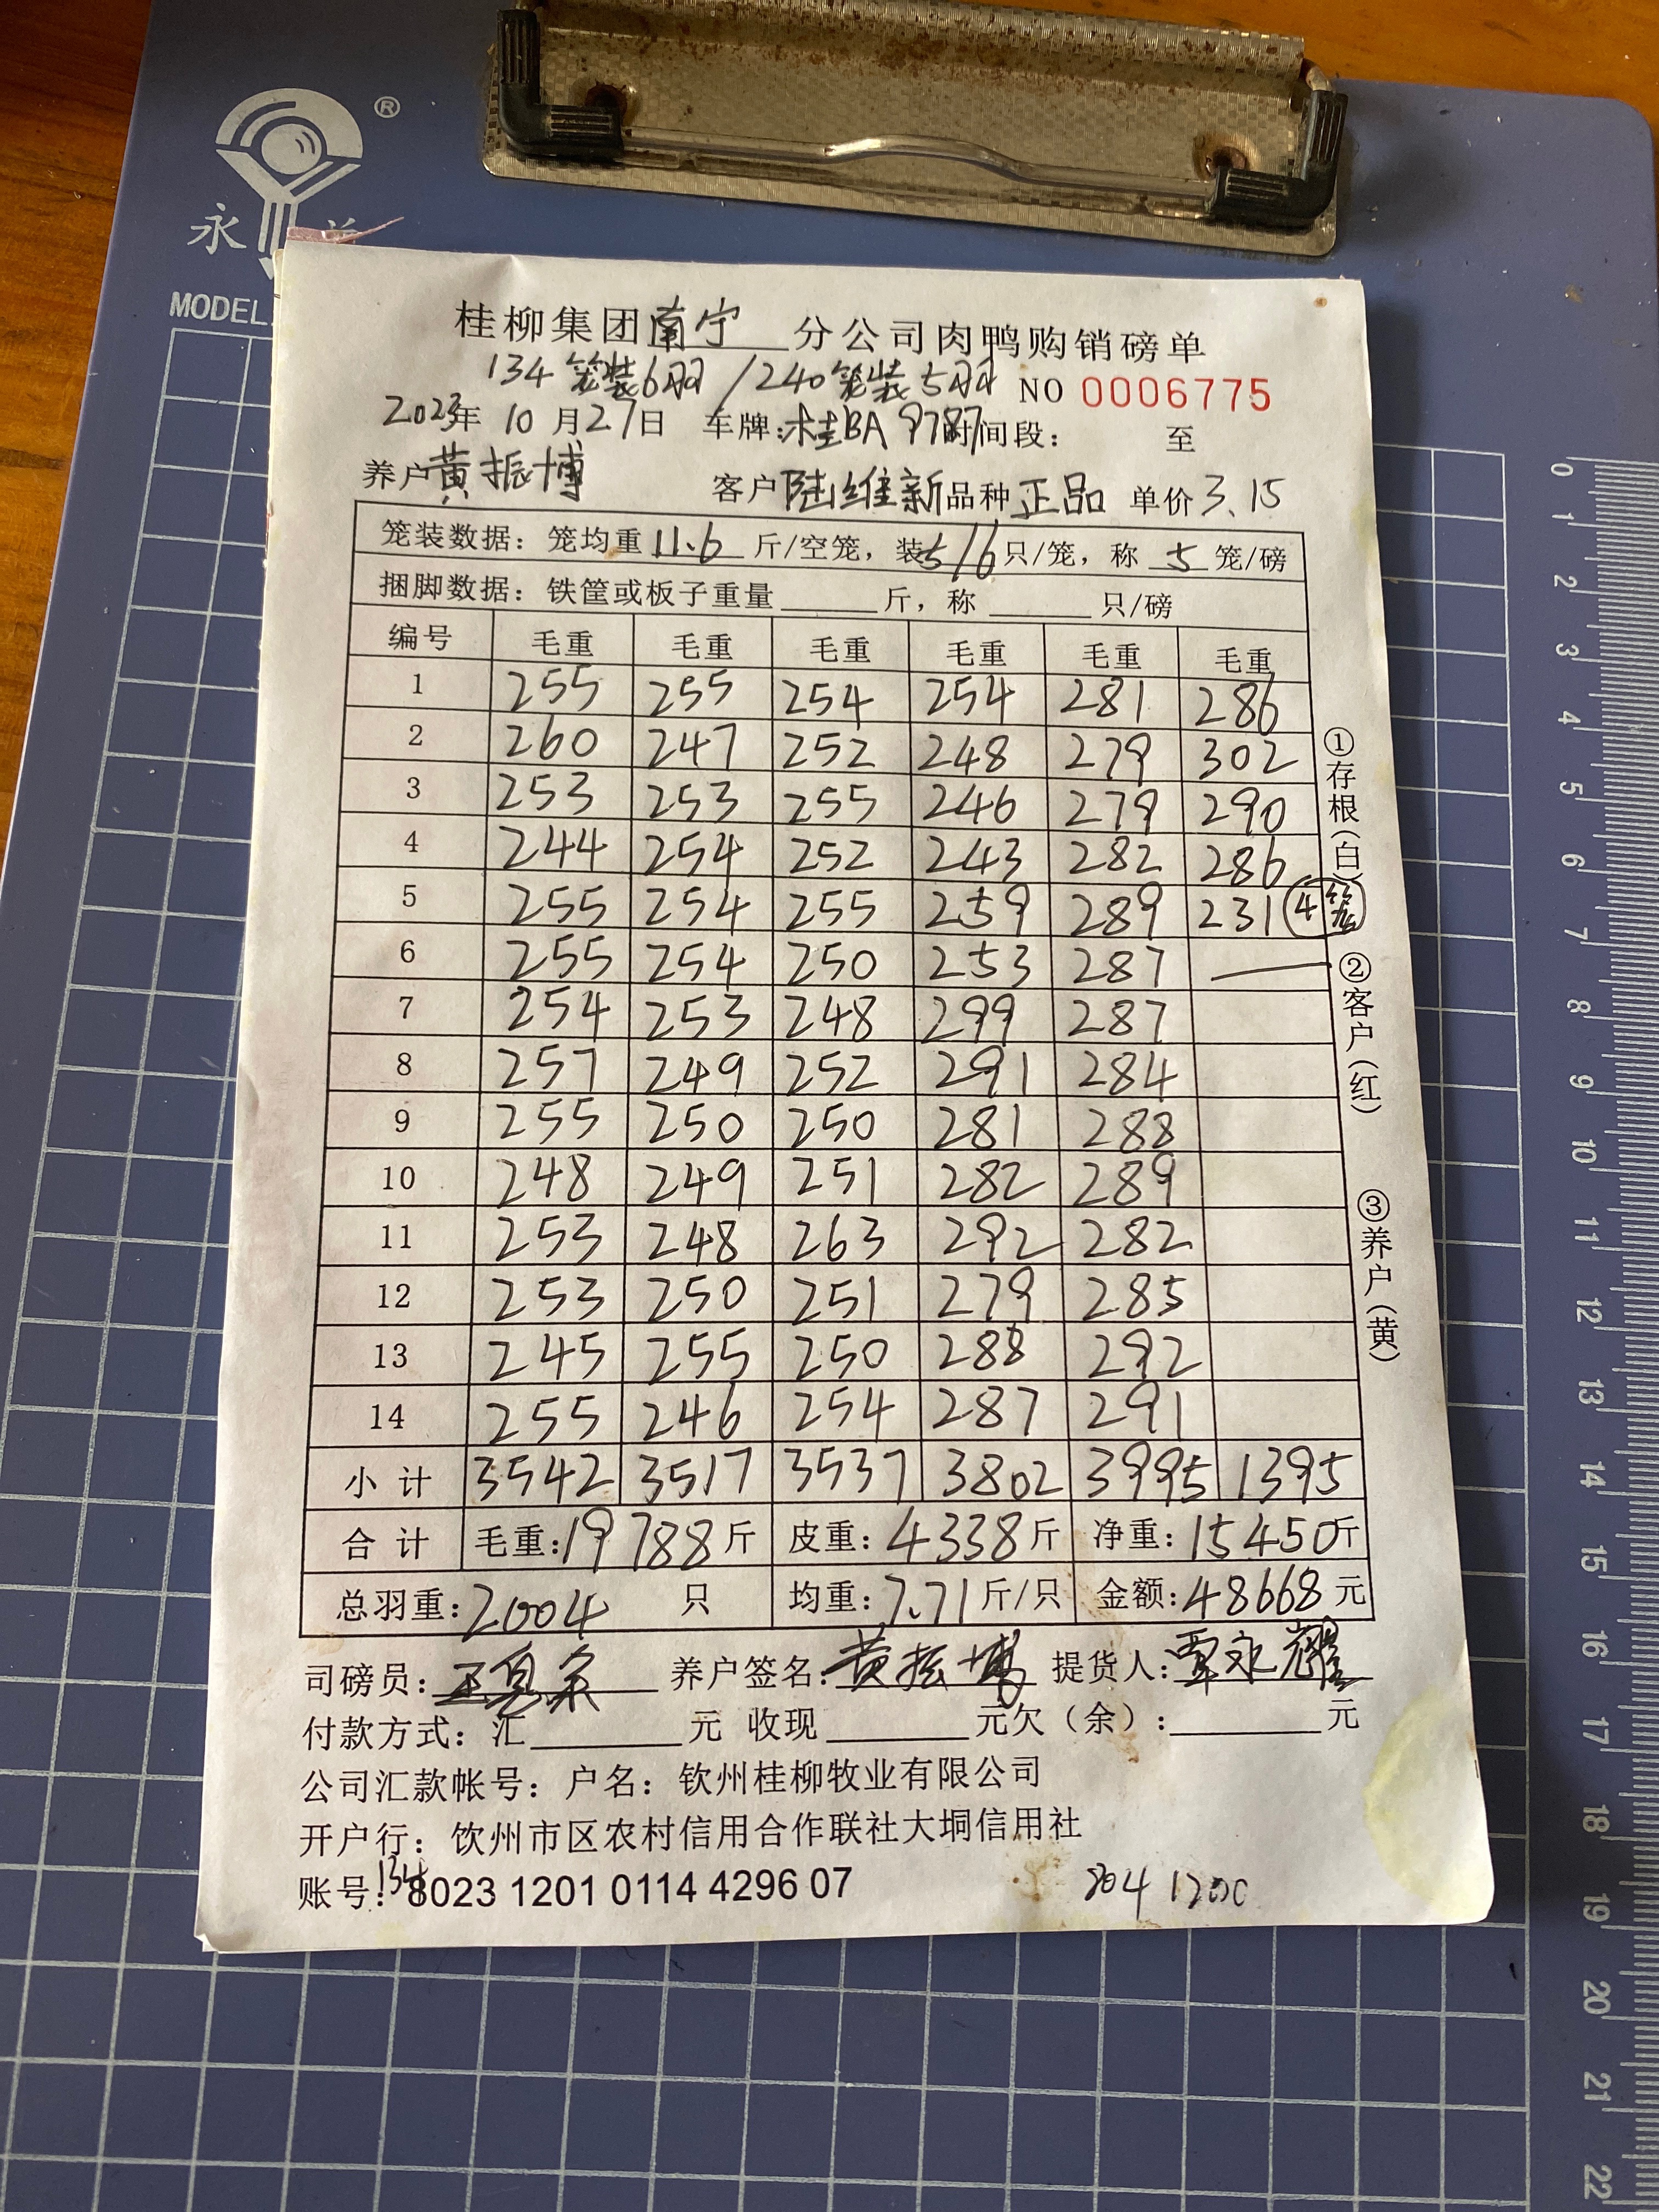 永
®
MODEL
桂柳集团南宁 分公司肉鸭购销磅单
134笼装6羽/240笼装5羽 NO 0006775
2023年 10 月27日 车牌:桂BA 9787 时间段: 至
养户 黄振博 客户 陆维新 品种 正品 单价 3.15
笼装数据: 笼均重 11.6 斤/空笼, 装 5/6 只/笼, 称 5 笼/磅
捆脚数据: 铁筐或板子重量 斤, 称 只/磅
编号 毛重 毛重 毛重 毛重 毛重 毛重
1 255 255 254 254 281 286
2 260 247 252 248 279 302
3 253 253 255 246 279 290
4 244 254 252 243 282 286
5 255 254 255 259 289 231 4笼
6 255 254 250 253 287 —
7 254 253 248 299 287
8 257 249 252 291 284
9 255 250 250 281 288
10 248 249 251 282 289
11 253 248 263 292 282
12 253 250 251 279 285
13 245 255 250 288 292
14 255 246 254 287 291
小计 3542 3517 3537 3802 3995 1395
合计 毛重:19788斤 皮重:4338斤 净重:15450斤
总羽重:2004 只 均重:7.71斤/只 金额:48668元
①存根(白) ②客户(红) ③养户(黄)
司磅员: 养户签名:黄振博 提货人:覃永耀
付款方式: 汇 元 收现 元欠(余): 元
公司汇款帐号: 户名: 钦州桂柳牧业有限公司
开户行: 饮州市区农村信用合作联社大垌信用社
账号: 134 8023 1201 0114 4296 07
804 1200
0
1
2
3
4
5
6
7
8
9
10
11
12
13
14
15
16
17
18
19
20
21
22